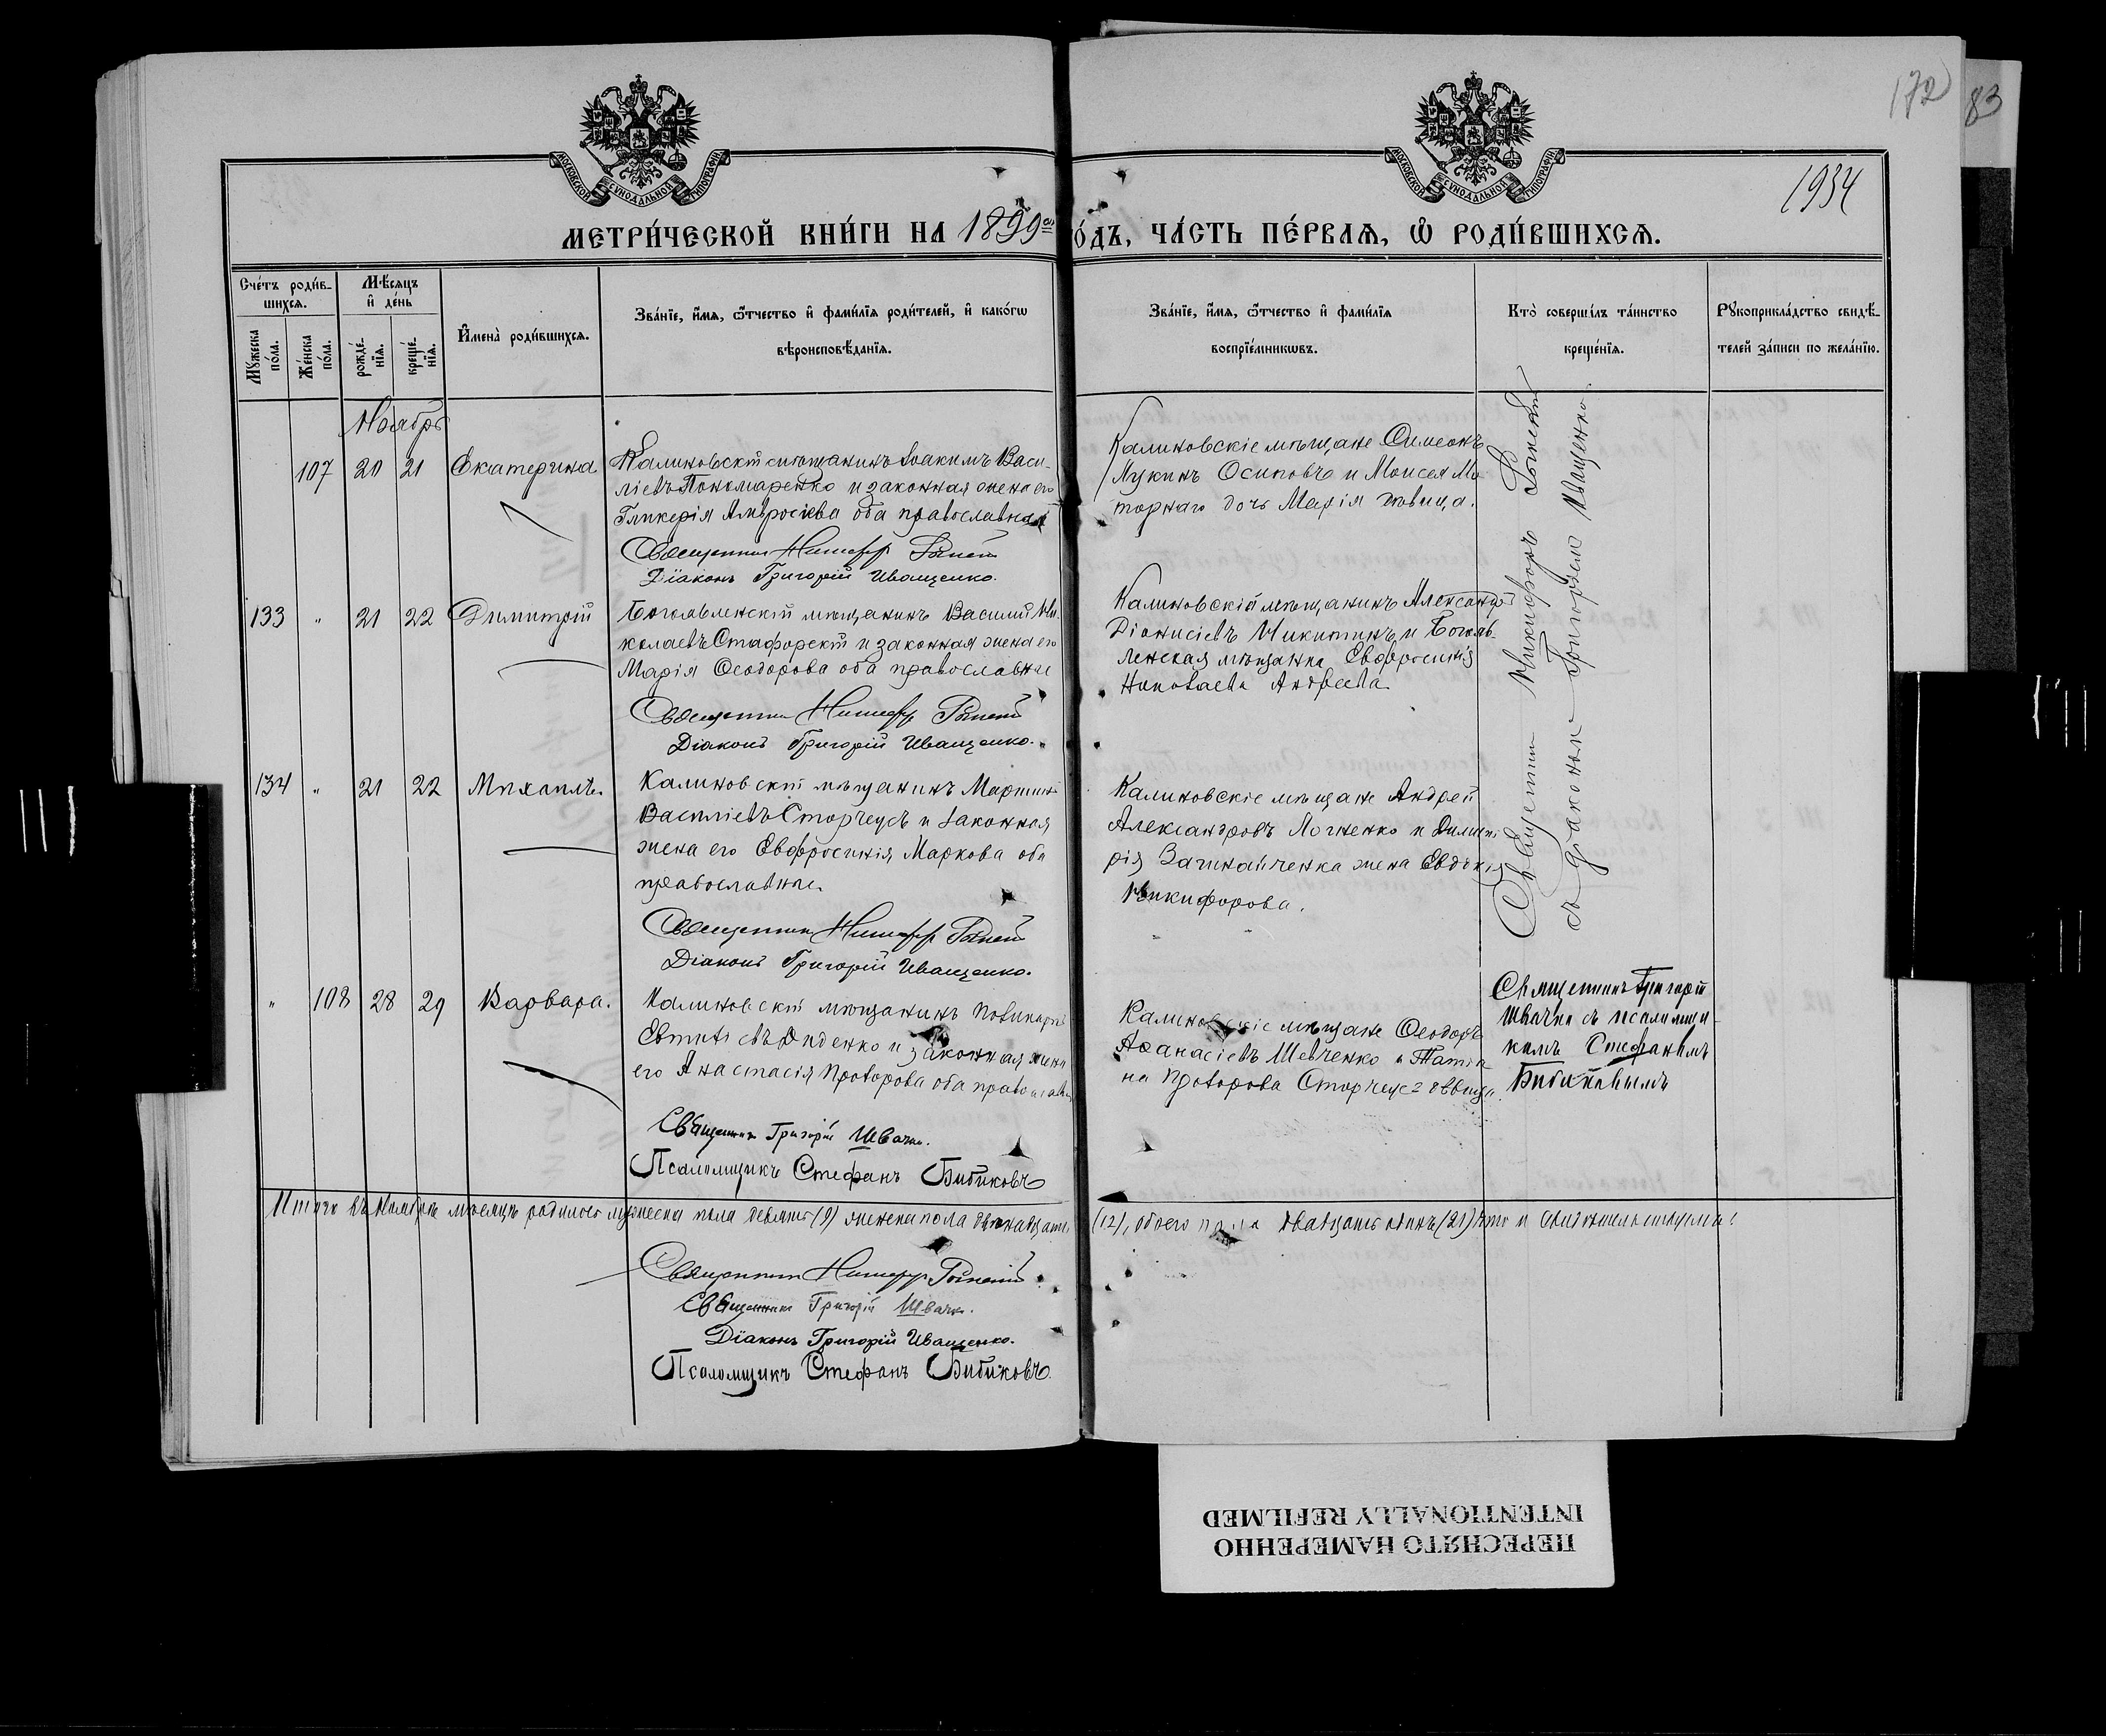 172
83
1934
МОСКОВСКОЙ СѴНОДАЛЬНОЙ ТИПОГРАФІИ
МОСКОВСКОЙ СѴНОДАЛЬНОЙ ТИПОГРАФІИ
МЕТРИ́ЧЕСКОЙ КНИ́ГИ НА 1899 ГО́ДЪ, ЧА́СТЬ ПЕ́РВАѦ, Ѡ РОДИ́ВШИХСѦ.
Сче́тъ роди́в-
шихсѧ.
Мꙋ́жеска по́ла.
Же́нска по́ла.
Мѣ́сѧцъ
и҆ де́нь
рожде́-нїѧ.
креще́-нїѧ.
И҆мена̀ роди́вшихсѧ.
Зва́нїе, и҆́мѧ, ѻ҆́тчество и҆ фами́лїѧ роди́телей, и҆ како́гѡ
вѣроисповѣ́данїѧ.
Зва́нїе, и҆́мѧ, ѻ҆́тчество и҆ фами́лїѧ
воспрїе́мникѡвъ.
Кто̀ соверши́лъ та́инство
креще́нїѧ.
Рꙋкоприкла́дство свидѣ́-
телей за́писи по жела́нїю.
Ноябрь
107 20 21 Екатерина
Калиновскій мѣщанинъ Іоакимъ Васи-
ліевъ Пономаренко и законная жена его
Гликерія Амвросіева оба православная
Священникъ Никифоръ
Діаконъ Григорій Иващенко.
Калиновскіе мѣщане Симеонъ
Лукинъ Осиповъ и Моисея Мо
торнаго дочь Марія дѣвица.
133 " 21 22 Димитрій
Богоявленскій мѣщанинъ Василій Ни-
колаевъ Стафорскій и законная жена его
Марія Ѳеодорова оба православные
Священникъ Никифоръ
Діаконъ Григорій Иващенко.
Калиновскій мѣщанинъ Александръ
Діонисіевъ Никитинъ и Богояв-
ленская мѣщанка Евфросинія
Николаева Андреева
134 " 21 22 Михаилъ.
Калиновскій мѣщанинъ Мартинъ
Василіевъ Сторчеусъ и законная
жена его Евфросинія Маркова оба
православные.
Священникъ Никифоръ
Діаконъ Григорій Иващенко.
Калиновскіе мѣщане Андрей
Александровъ Логненко и Димит
рія жена Евдокія
Никифорова.
Священникъ Никифоръ
съ діакономъ Григоріемъ Иващенко
" 108 28 29 Варвара.
Калиновскій мѣщанинъ Поликарпъ
Евтихіевъ Диденко и законная жена
его Анастасія Прохорова оба православн
Священникъ Григорій Швачка.
Псаломщикъ Стефанъ Бибиковъ
Калиновскіе мѣщане Ѳеодоръ
Аѳанасіевъ Шевченко и Татіа
на Прохорова Сторчеус дѣвица.
Священникъ Григорій
Швачка съ псаломщи-
комъ Стефаномъ
Бибиковымъ
Итого въ Ноябрѣ мѣсяцѣ родилось мужеска пола девять (9) женска пола двѣнадцать (12), обоего пола двадцать одинъ (21) что и свидѣтельствуемъ:
Священникъ Никифоръ
Священникъ Григорій Швачка.
Діаконъ Григорій Иващенко.
Псаломщикъ Стефанъ Бибиковъ.
ПЕРЕСНЯТО НАМЕРЕННО
INTENTIONALLY REFILMED